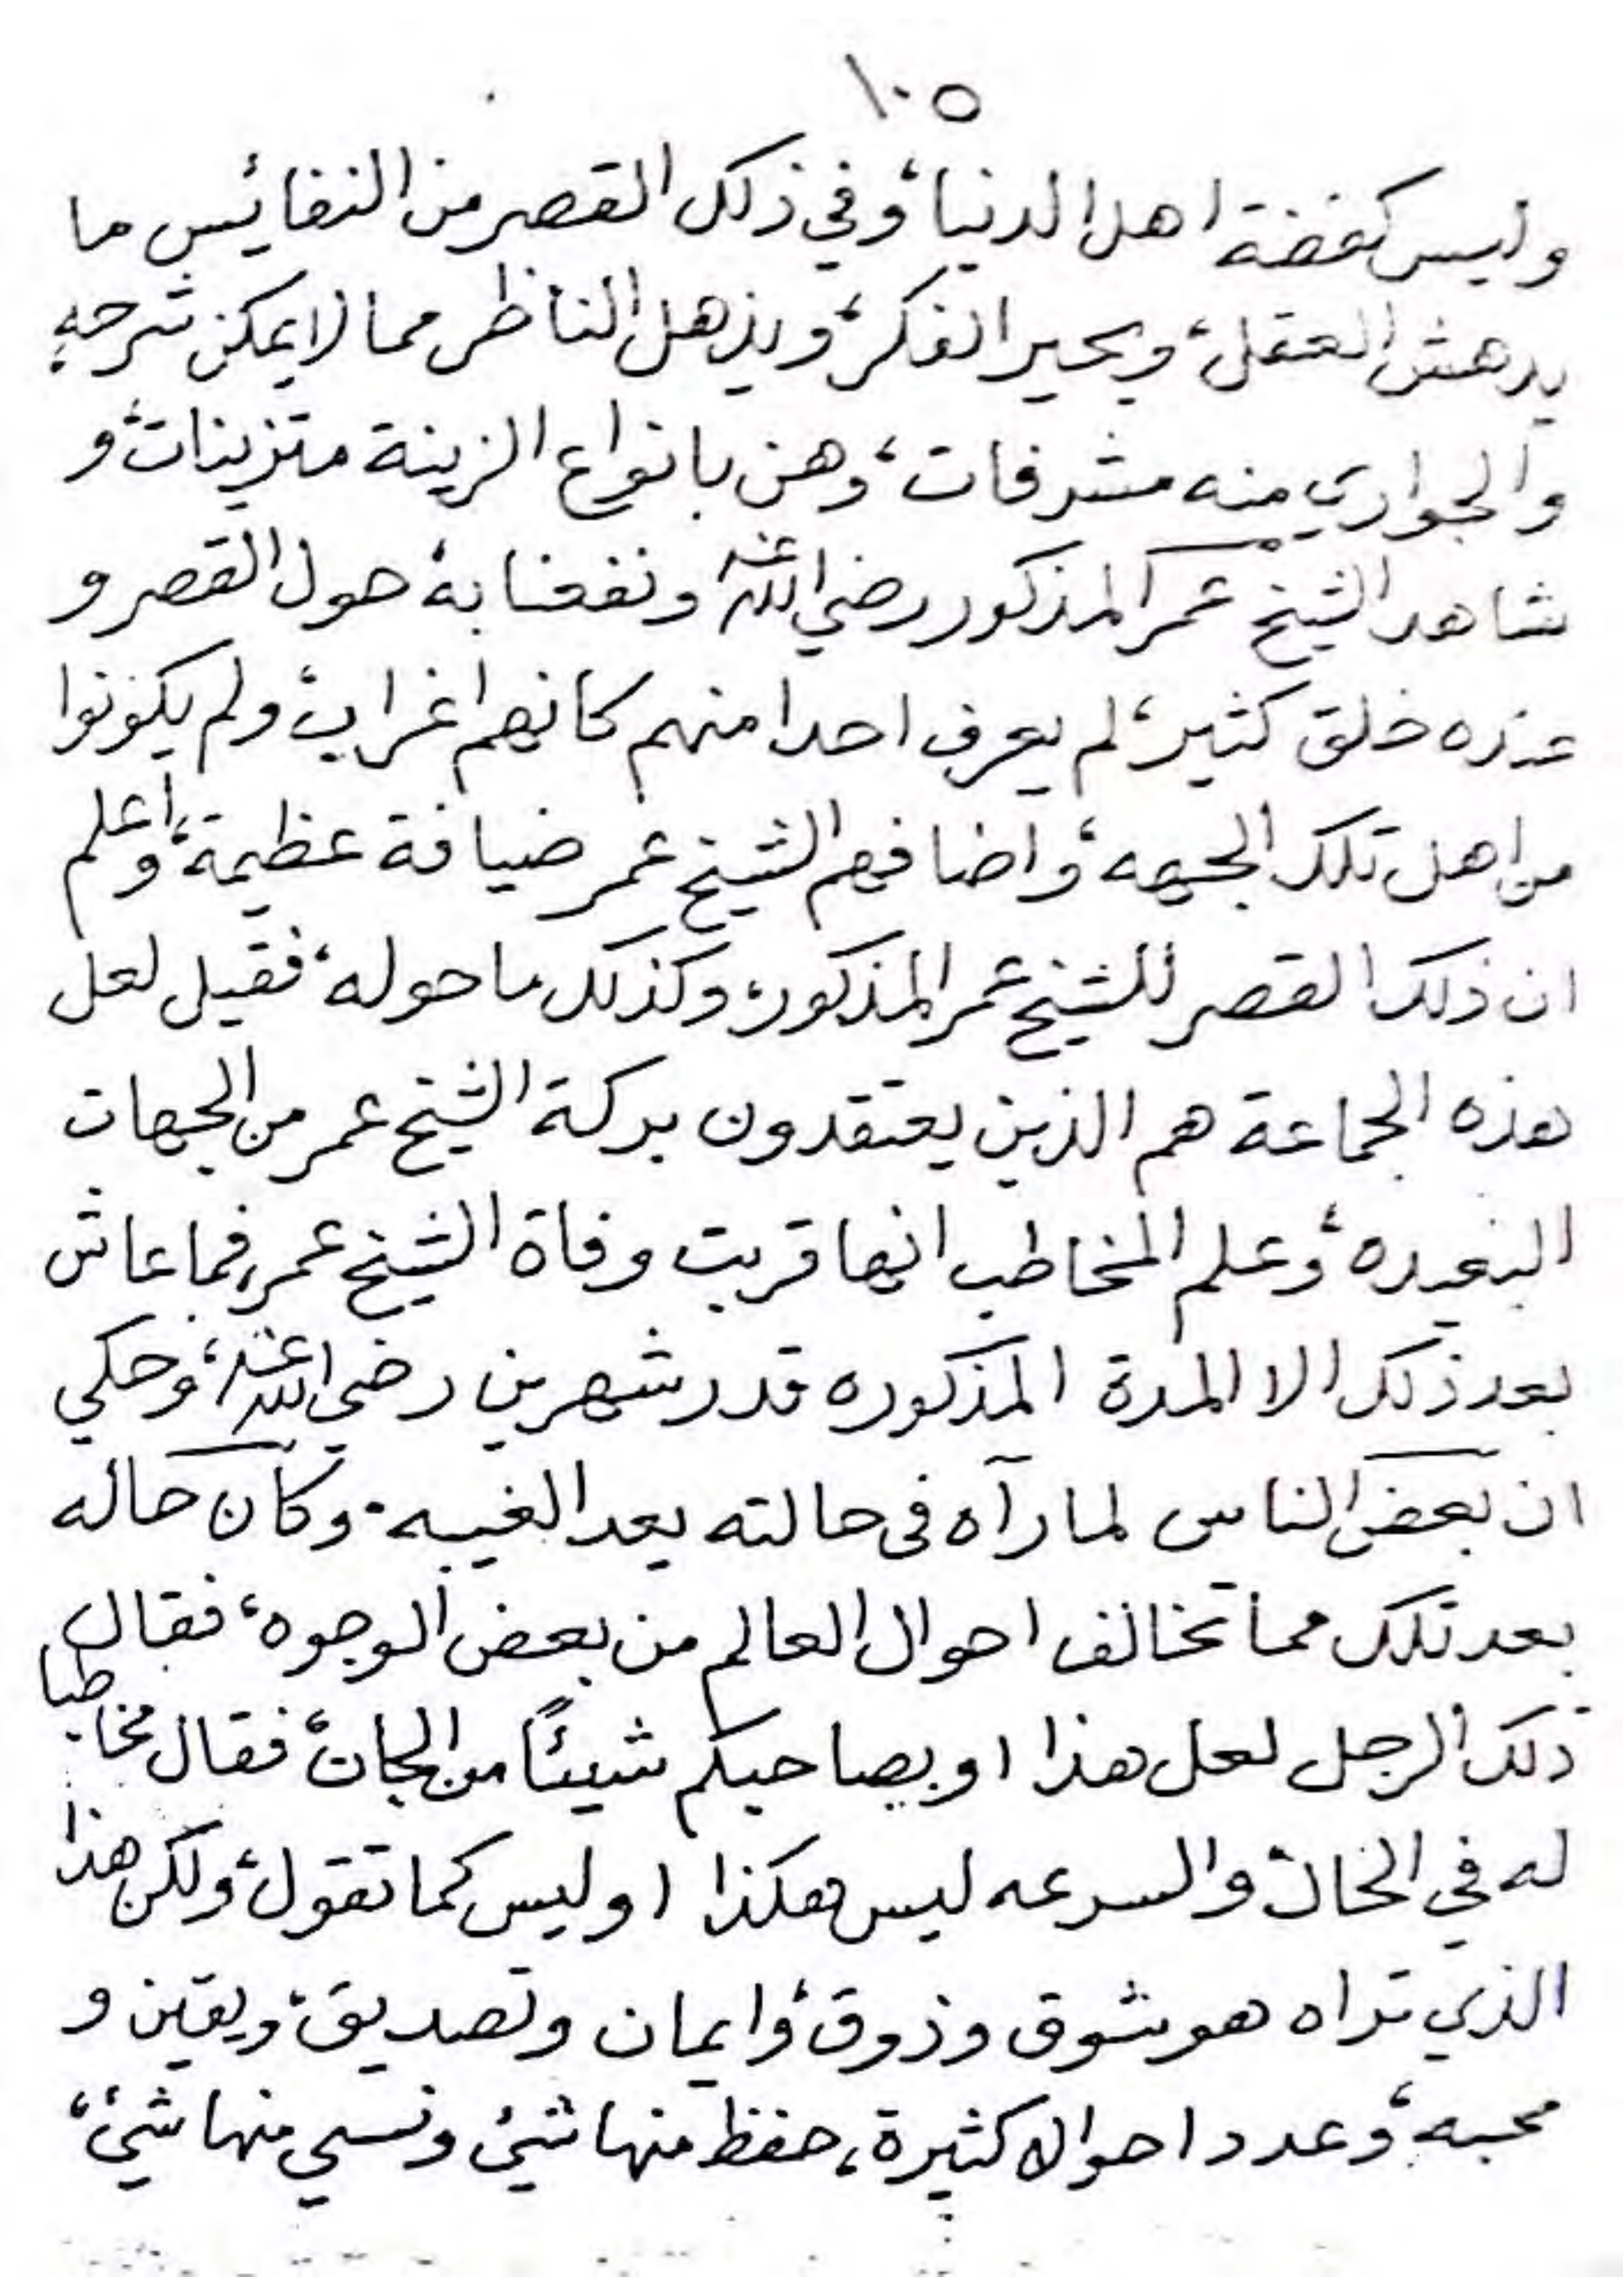 ١٠٥
وليس كفضة اهل الدنيا، وفي ذلك القصر من النفائس ما
يدهش العقل، ويحير الفكر، ويذهل الناظر مما لا يمكن شرحه
والجواري منه مشرفات، وهن بانواع الزينة متزينات، و
شاهد الشيخ عمر المذكور رضي الله عنه ونفعنا به حول القصر و
عنده خلق كثير، لم يعرف احدا منهم كانهم اغراب، ولم يكونوا
من اهل تلك الجهه، واضافهم الشيخ عمر ضيافة عظيمة، واعلم
ان ذلك القصر للشيخ عمر المذكور، وكذلك ما حوله، فقيل لعل
هذه الجماعة هم الذين يعتقدون بركة الشيخ عمر من الجهات
البعيده، وعلم المخاطب انها قربت وفاة الشيخ عمر، فما عاش
بعد ذلك الا المدة المذكوره قدر شهرين رضي الله عنه، وحكي
ان بعض الناس لما رآه في حالته بعد الغيبه. وكان حاله
بعد تلك مما تخالف احوال العالم من بعض الوجوه، فقال
ذلك الرجل لعل هذا او بصاحبكم شيئًا من الجان، فقال مخاطبا
له في الحال، والسرعه ليس هكذا او ليس كما تقول، ولكن هذا
الذي تراه هو شوق وذوق، وايمان وتصديق، ويقين و
محبه، وعدد احوالا كثيرة، حفظ منها شيئ ونسي منها شيئ،